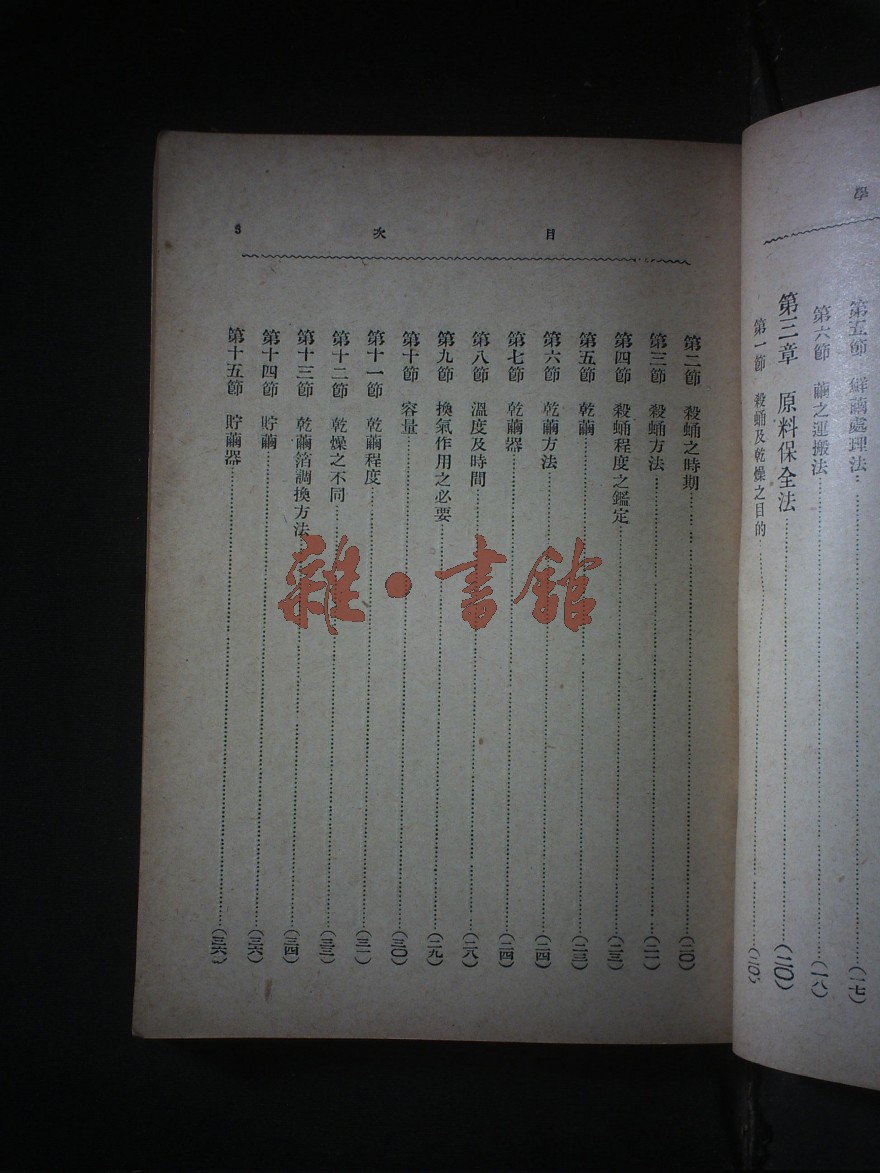 學
第五節 鮮繭處理法(一七)
第六節 繭之運搬法(一八)
第三章 原料保全法(二〇)
第一節 殺蛹及乾燥之目的(二〇)
目 次 3
第二節 殺蛹之時期(二〇)
第三節 殺蛹方法(二一)
第四節 殺蛹程度之鑑定(二三)
第五節 乾繭(二三)
第六節 乾繭方法(二四)
第七節 乾繭器(二四)
第八節 溫度及時間(二八)
第九節 換氣作用之必要(二九)
第十節 容量(三〇)
第十一節 乾繭程度(三一)
第十二節 乾燥之不同(三三)
第十三節 乾繭箔調換方法(三四)
第十四節 貯繭(三六)
第十五節 貯繭器(三六)
雜·書館